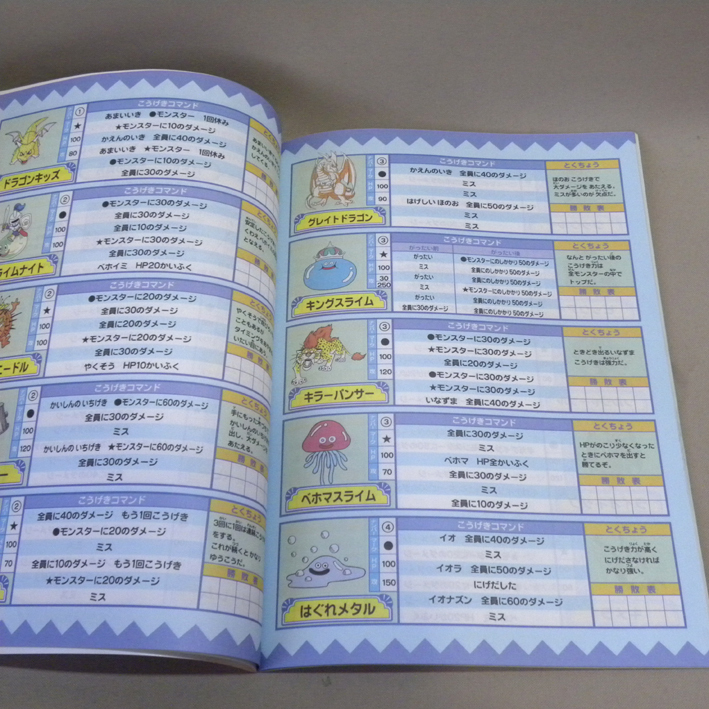 こうげきコマンド
①
★
100
80
あまいいき ●モンスター 1回休み
★モンスターに10のダメージ
かえんのいき 全員に40のダメージ
あまいいき ★モンスター 1回休み
●モンスターに10のダメージ
全員に30のダメージ
ドラゴンキッズ
こうげきコマンド
②
●
100
100
●モンスターに30のダメージ
全員に30のダメージ
全員に10のダメージ
★モンスターに30のダメージ
全員に30のダメージ
ベホイミ HP20かいふく
ライムナイト
こうげきコマンド
②
★
100
100
●モンスターに20のダメージ
全員に30のダメージ
全員に20のダメージ
★モンスターに20のダメージ
全員に30のダメージ
やくそう HP10かいふく
ードル
こうげきコマンド
②
●
100
120
かいしんのいちげき ●モンスターに60のダメージ
全員に30のダメージ
ミス
かいしんのいちげき ★モンスターに60のダメージ
全員に30のダメージ
ミス
こうげきコマンド
②
★
100
70
全員に40のダメージ もう1回こうげき
●モンスターに20のダメージ
ミス
全員に10のダメージ もう1回こうげき
★モンスターに20のダメージ
ミス
3回に1回は連続こうげき
をする。
これが続くとかなり
ゆうこうだ。
勝敗表
こうげきコマンド
③
●
100
90
かえんのいき 全員に40のダメージ
ミス
ミス
はげしいほのお 全員に50のダメージ
ミス
ミス
とくちょう
ほのお こうげきで
大ダメージを あたえる。
ミスが多いのが 欠点だ。
勝敗表
グレイトドラゴン
こうげきコマンド
③
★
100
30
250
がったい前
がったい後
がったい
●モンスターにのしかかり 50のダメージ
ミス
全員にのしかかり 50のダメージ
がったい
全員にのしかかり 50のダメージ
ミス
★モンスターにのしかかり 50のダメージ
がったい
全員にのしかかり 50のダメージ
全員に30のダメージ
全員にのしかかり 50のダメージ
とくちょう
なんと がったい後の
こうげき力は
全モンスターの中で
トップだ。
勝敗表
キングスライム
こうげきコマンド
③
●
100
120
●モンスターに30のダメージ
★モンスターに30のダメージ
全員に20のダメージ
●モンスターに30のダメージ
★モンスターに30のダメージ
いなずま 全員に40のダメージ
とくちょう
ときどき出るいなずま
こうげきは強力だ。
勝敗表
キラーパンサー
こうげきコマンド
③
★
100
70
全員に30のダメージ
ミス
ベホマ HP全かいふく
ミス
全員に30のダメージ
全員に10のダメージ
とくちょう
HPがのこり少なくなった
ときにベホマを出すと
勝てるぞ。
勝敗表
ベホマスライム
こうげきコマンド
④
●
100
150
イオ 全員に40のダメージ
ミス
イオラ 全員に50のダメージ
にげだした
イオナズン 全員に60のダメージ
ミス
とくちょう
こうげき力が高く
にげださなければ
かなり強い。
勝敗表
はぐれメタル